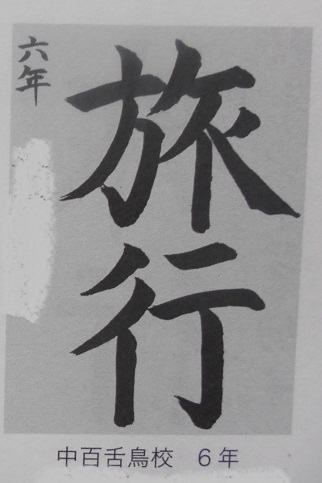 六年
旅行
中百舌鳥校 6年